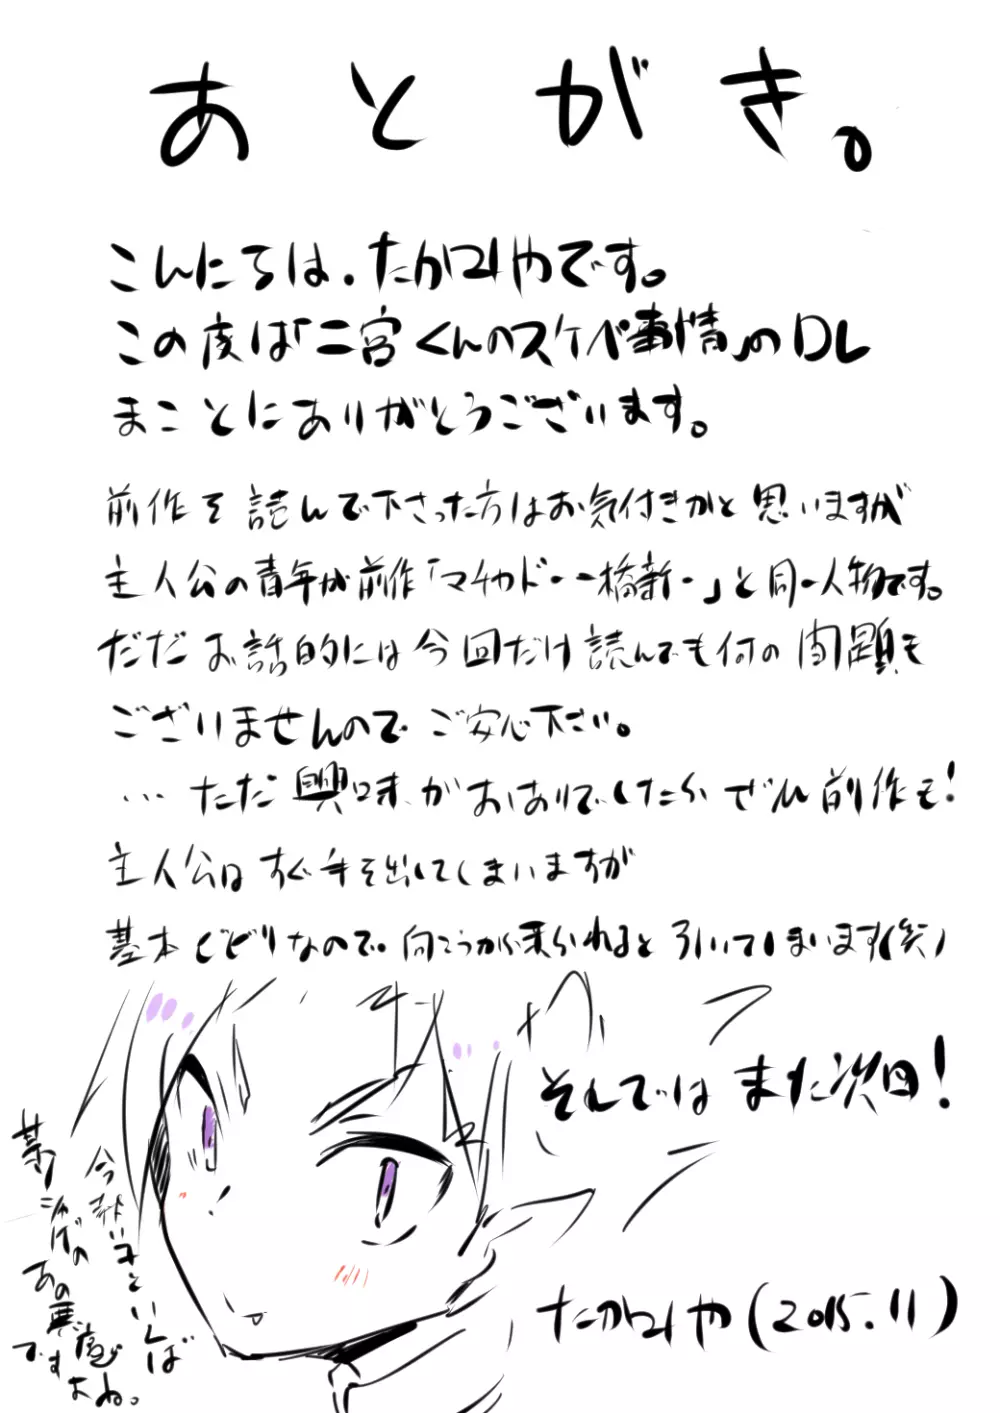 あとがき。
こんにちは、たかみやです。
この度は「二宮くんのスケベ事情」のDL
まことにありがとうございます。
前作を読んで下さった方はお気付きかと思いますが
主人公の青年が前作「マチカドー一橋新一」と同一人物です。
だだお話的には今回だけ読んでも何の問題も
ございませんのでご安心下さい。
…ただ興味がおありでしたらぜひ前作も!
主人公はすぐ手を出してしまいますが
基本ビビリなので向こうが来られると引いてしまいます(笑)
それではまた次回!
たかみや(2015.11)
今熱い子といえば
某ソシャゲの
あの悪魔
ですよね。